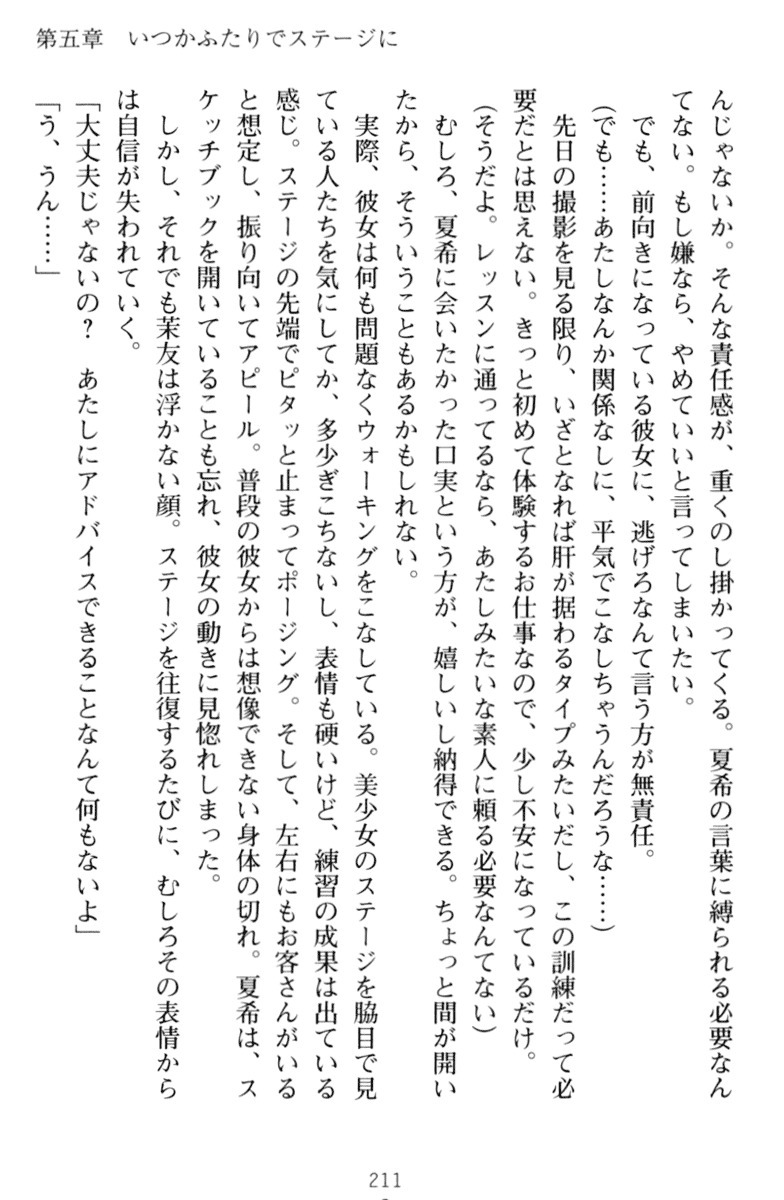 第五章　いつかふたりでステージに
んじゃないか。そんな責任感が、重くのし掛かってくる。夏希の言葉に縛られる必要なん
てない。もし嫌なら、やめていいと言ってしまいたい。
　でも、前向きになっている彼女に、逃げろなんて言う方が無責任。
（でも……あたしなんか関係なしに、平気でこなしちゃうんだろうな……）
　先日の撮影を見る限り、いざとなれば肝が据わるタイプみたいだし、この訓練だって必
要だとは思えない。きっと初めて体験するお仕事なので、少し不安になっているだけ。
（そうだよ。レッスンに通ってるなら、あたしみたいな素人に頼る必要なんてない）
　むしろ、夏希に会いたかった口実という方が、嬉しいし納得できる。ちょっと間が開い
たから、そういうこともあるかもしれない。
　実際、彼女は何も問題なくウォーキングをこなしている。美少女のステージを脇目で見
ている人たちを気にしてか、多少ぎこちないし、表情も硬いけど、練習の成果は出ている
感じ。ステージの先端でピタッと止まってポージング。そして、左右にもお客さんがいる
と想定し、振り向いてアピール。普段の彼女からは想像できない身体の切れ。夏希は、ス
ケッチブックを開いていることも忘れ、彼女の動きに見惚れしまった。
　しかし、それでも茉友は浮かない顔。ステージを往復するたびに、むしろその表情から
は自信が失われていく。
「大丈夫じゃないの？　あたしにアドバイスできることなんて何もないよ」
「う、うん……」
211